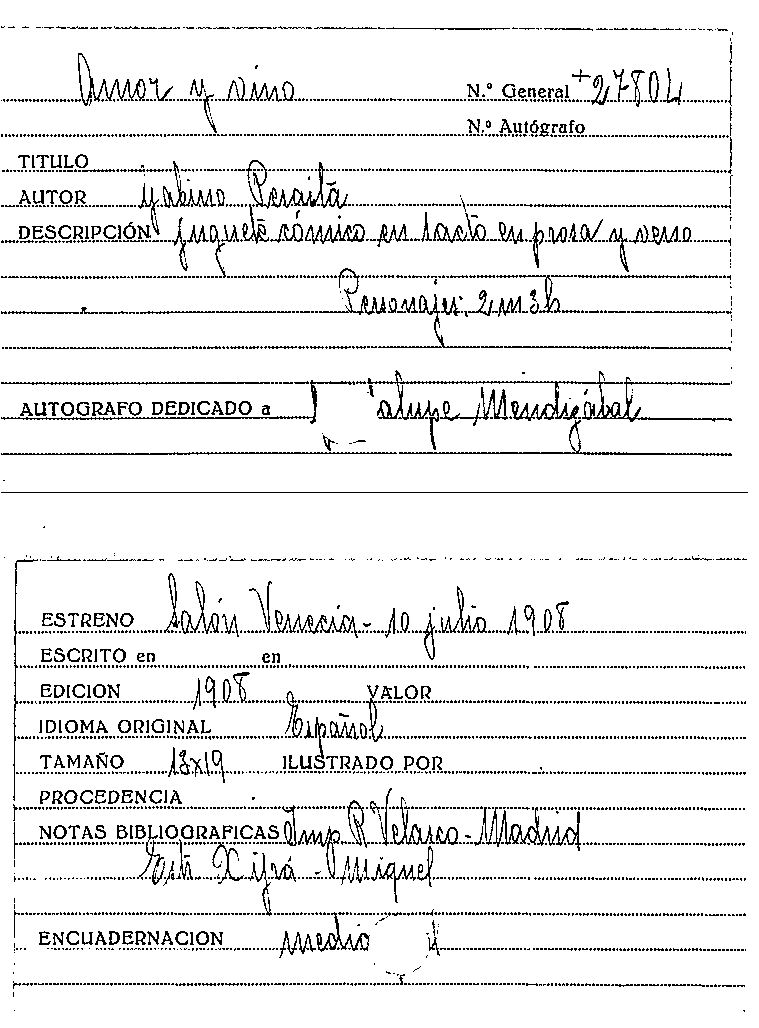 Amor y vino
N.º General +27804
N.º Autógrafo
TITULO
AUTOR Gabino Peraita
DESCRIPCIÓN juguete cómico en 1 acto en prosa y verso
Personajes: 2 m 3 h
AUTOGRAFO DEDICADO a alupe Mendizábal
ESTRENO Salón Venecia - 10 julio 1908
ESCRITO en en
EDICION 1908 VALOR
IDIOMA ORIGINAL Español
TAMAÑO 13x19 ILUSTRADO POR
PROCEDENCIA
NOTAS BIBLIOGRAFICAS Imp R Velasco - Madrid
Est Xifrá - Miquel
ENCUADERNACION medio